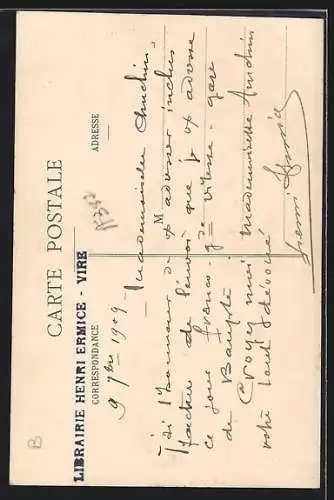 CARTE POSTALE
LIBRAIRIE HENRI ERMICE - VIRE
CORRESPONDANCE
ADRESSE
9 7bre 1909 - Mademoiselle
M
J'ai l'honneur de vs adresser inclus
facture de l'envoi que je vs adresse
ce jour franco gde vitesse - gare
de Baupte
Croyez moi Mademoiselle
votre tout dévoué
Henri Ermice
B